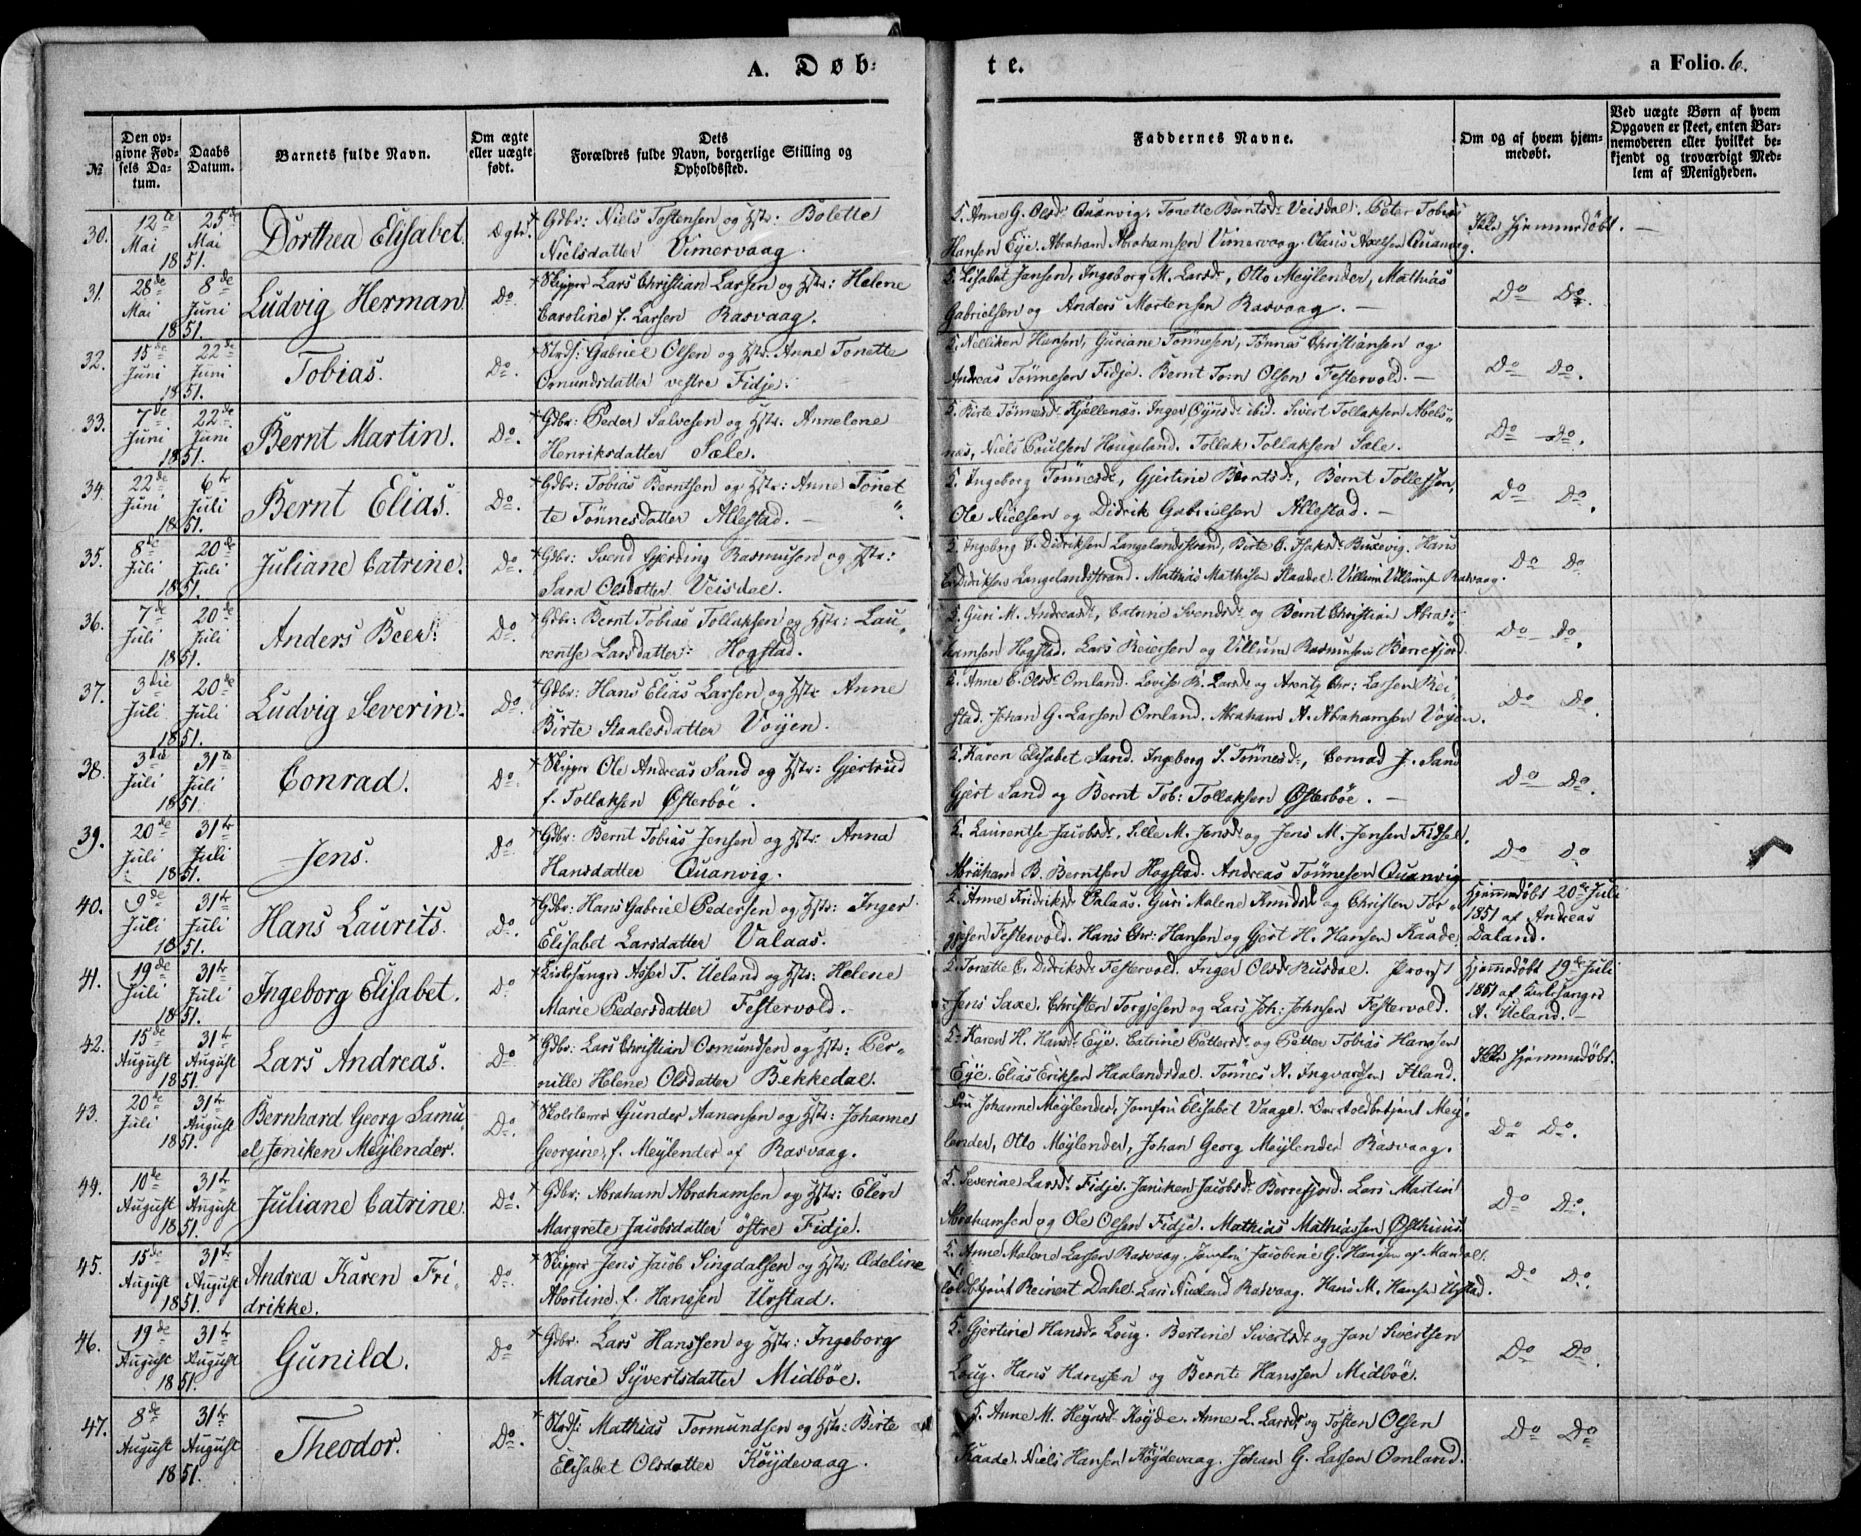 A. Døb-
te.
a Folio. 6.
№
Den op-
givne Fød-
sels Da-
tum.
Daabs
Datum.
Barnets fulde Navn.
Om ægte
eller uægte
født.
Dets
Forældres fulde Navn, borgerlige Stilling og
Opholdssted.
Faddernes Navne.
Om og af hvem hjem-
medøbt.
Ved uægte Børn af hvem
Opgaven er skeet, enten Bar-
nemoderen eller hvilket be-
kjendt og troværdigt Med-
lem af Menigheden.
30. 12te Mai 1851. 25de Mai Dorthea Elisabet. Ægte. Gdbr: Niels Tostensen og Hstr: Bolette
Nielsdatter Vimervaag.
5. Anne G. Olsdr Quanvig, Tonette Berntsdr Veisdal. Peter Tobias
Hansen Eye. Abraham Abrahamsen Vimervaag. Olaus Axelsen Quanvig.
Ikke hjemmedøbt. —
31. 28de Mai 1851. 8de Juni Ludvig Herman. Do. Skipper Lars Christian Larsen og Hstr: Helene
Caroline f. Larsen Rasvaag.
5. Lisabet Jansen, Ingeborg M. Larsdr, Otto Meylender, Mathias
Gabrielsen og Anders Mortensen Rasvaag. —
Do Do.
32. 15de Juni 1851. 22de Juni Tobias. Do. Strds: Gabriel Olsen og Hstr: Anne Tonette
Omundsdatter vestre Fidje.
5. Nelliken Hansen, Guriane Tönnesen, Tönnes Christiansen og
Andreas Tönnesen Fidje. Bernt Torn Olsen Festervold. —
Do Do.
33. 7de Juni 1851. 22de Juni Bernt Martin. Do. Gdbr: Peder Salvesen og Hstr: Annelene
Henriksdatter Sæle.
5. Birte Tönnesdr Kjellenæs. Inger ibid. Sivert Tollaksen Abels-
næs, Niels Poulsen Hougeland. Tollak Tollaksen Sæle.
Do Do.
34. 22de Juni 1851. 6te Juli Bernt Elias. Do. Gdbr: Tobias Berntsen og Hstr: Anne Tonet
te Tönnesdatter Allestad. —
5. Ingeborg Tönnesdr, Gjertine Berntsdr, Bernt Tollefsen,
Ole Nielsen og Didrik Gabrielsen Allestad. —
Do Do.
35. 8de Juli 1851. 20de Juli Juliane Catrine. Do. Gdbr: Svend Gjerding Rasmusen og Hstr:
Sara Olsdatter Veisdal.
5. Ingeborg C. Didriksen Langelandsstrand, Birte C. Isaksdr Buxevig. Hans
Didriksen Langelandsstrand. Mathias Mathisen Kaadel. Villum Villumsen Rasvaag.
Do Do
36. 7de Juli 1851. 20de Juli Anders Beer. Do. Gdbr: Bernt Tobias Tollaksen og Hstr: Lau-
rentse Larsdatter Hogstad.
5. Guri M. Andreasdr, Catrine Svendsdr og Bernt Christian Abra-
hamsen Hogstad. Lars Reiersen og Villum Rasmusen Berrefjord.
Do Do.
37. 3die Juli 1851. 20de Juli Ludvig Severin. Do. Gdbr: Hans Elias Larsen og Hstr Anne
Birte Staalesdatter Voyen.
5. Anne C. Olsdr Omland. Lovise R. Larsdr og Arentz Chr: Larsen Rei-
stad. Johan G. Larsen Omland. Abraham A. Abrahamsen Voyen.
Do Do.
38. 3die Juli 1851. 31te Juli Conrad. Do. Skipper Ole Andreas Sand og Hstr: Gjertrud
f. Tollaksen Østerböe.
5. Karen Elisabet Sand. Ingeborg S. Tönnesdr, Conrad J. Sand
Gjert Sand og Bernt Tob: Tollaksen Østerböe. —
Do Do.
39. 20de Juli 1851. 31te Juli Jens. Do. Gdbr: Bernt Tobias Jensen og Hstr. Anna
Hansdatter Quanvig.
5. Laurentse Jacobsdr, Sille M. Jensdr og Jens M. Jensen Fidsel.
Abraham B. Berntsen Hogstad. Andreas Tönnesen Quanvig.
Do Do
40. 9de Juli 1851. 31te Juli Hans Laurits. Do. Gdbr: Hans Gabriel Pedersen og Hstr: Inger
Elisabet Larsdatter Valaas.
5. Anne Fridriksdr Valaas. Guri Malene og Christen Tor-
gjesen Festervold. Hans Chr: Hansen og Gjert H. Hansen Kaade.
Hjemmedøbt 20de Juli
1851 af Andreas
Daland.
41. 19de Juli 1851. 31te Juli Ingeborg Elisabet. Do. Kirkesanger Asser T. Ueland og Hstr: Helene
Marie Pedersdatter Festervold.
5. Tonette C. Didriksdr Festervold. Inger Olsdr Rusdal. Provst
Jens Saxe. Christen Torgjesen og Lars Joh: Johnsen Festervold.
Hjemmedøbt 19de Juli
1851 af Kirkesanger
A. Ueland. —
42. 15de August 1851. 31te August Lars Andreas. Do. Gdbr: Lars Christian Osmundsen og Hstr: Per-
nille Helene Olsdatter Bekkedal.
5. Karen H. Hansdr Eye. Catrine Pettersdr og Petter Tobias Hansen
Eye. Elias Eriksen Haalandsdal. Tönnes A. Ingvardsen Itland.
Ikke hjemmedøbt.
43. 20de Juli 1851. 31te August Bernhard Georg Samu-
el Joniken Meylender. Do. Skolelærer Gunder Aanensen og Hstr: Johanne
Georgine f. Meylender af Rasvaag.
Fru Johanne Meylender, Jomfru Elisabet Vaage. Overtoldbetjent Mey-
lender, Otto Meylender, Johan Georg Meylender Rasvaag.
Do Do.
44. 10de August 1851. 31te August Juliane Catrine. Do. Gdbr: Abraham Abrahamsen og Hstr: Elen
Margrete Jacobsdatter östre Fidje.
5. Severine Larsdr Fidje. Janiken Jacobsdr Berrefjord. Lars Martin
Abrahamsen og Ole Olsen Fidje. Mathias Mathiassen Østhuus.
Do Do.
45. 15de August 1851. 31te August Andrea Karen Fri-
drikke. Do. Skipper Jens Jacob Singdalsen og Hstr: Ædeline
Abortine f. Hanssen Urstad.
5. Anne Malene Larsen Rasvaag. Jomfru Jacobine G. Hansen af Mandal.
Toldbetjent Reinert Dahl. Lars Rasvaag. Hans M. Hansen Urstad.
Do Do.
46. 19de August 1851. 31te August Gunild. Do Gdbr. Lars Hanssen og Hstr: Ingeborg
Marie Syvertsdatter Midböe.
5. Gjertine Hansdr Loug. Bertine Sivertsdr og Jan Sivertsen
Loug. Hans Hanssen og Bernt Hanssen Midböe.
Do Do.
47. 8de August 1851. 31te August Theodor. Do. Strds: Mathias Tormundsen og Hstr: Birte
Elisabet Olsdatter Höydevaag.
5. Anne M. Heynsdr Höyde. Anne L. Larsdr og Tosten Olsen
Kaade. Niels Hansen Höydevaag. Johan G. Lassen Omland.
Do Do